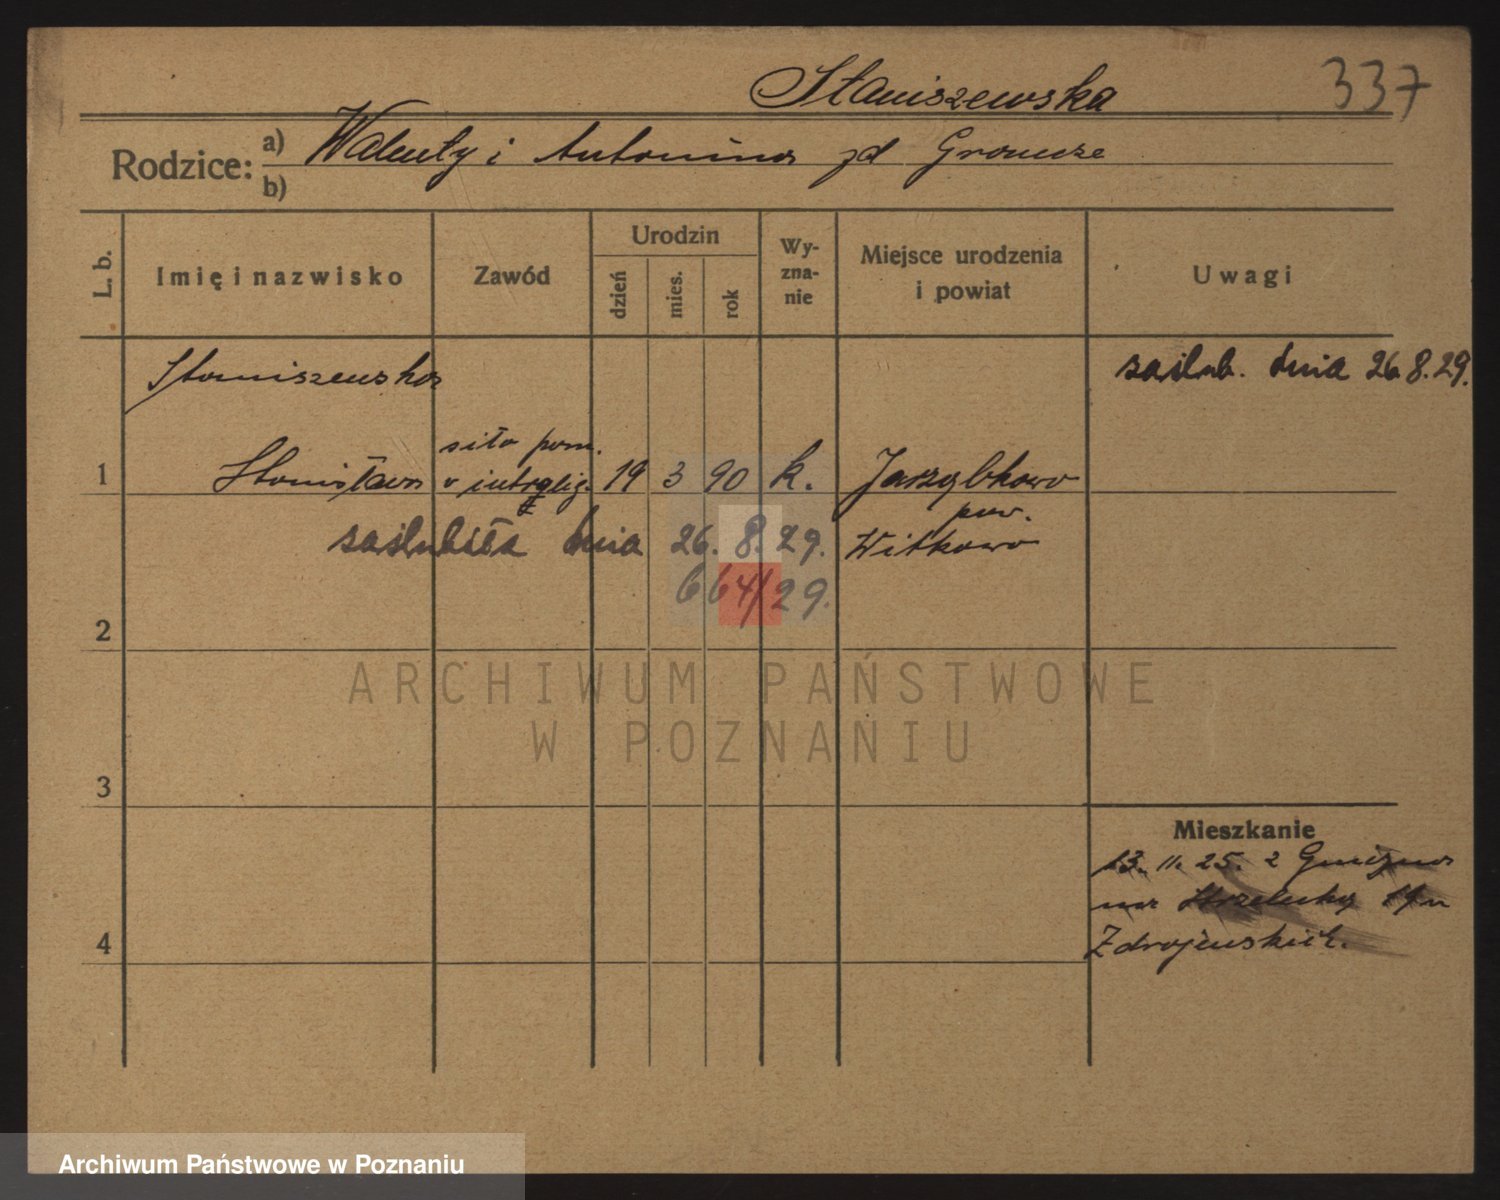 Staniszewska 337
Rodzice: a) Walenty i Antonina zd
b)
L. b. Imię i nazwisko Zawód Urodzin dzień mies. rok Wy-zna-nie Miejsce urodzenia i powiat Uwagi
Staniszewska zaślub. dnia 26.8.29.
siła pom.
1 Stanisława w introlig. 19 3 90 k. Jarząbkowo
pow.
zaślubiła dnia 26. 8. 29. Witkowo
664/29.
2
ARCHIWUM PAŃSTWOWE
W POZNANIU
3
Mieszkanie
13. 11. 25. z Gniezna
na Strzelecką 19 u
4 Zdrojewskich.
Archiwum Państwowe w Poznaniu